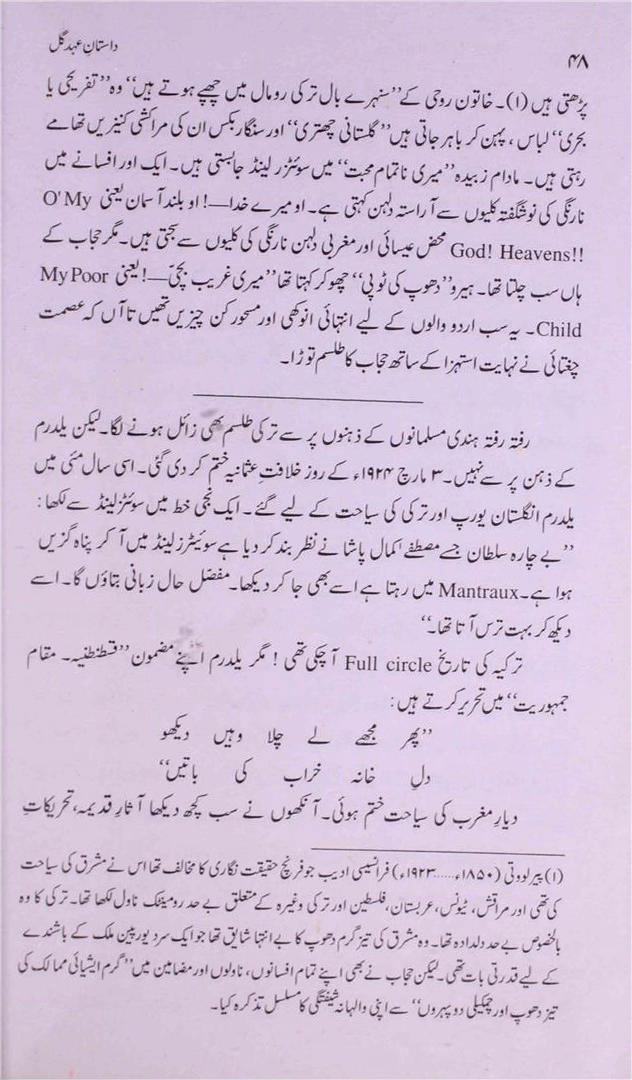 داستانِ عہد گل
۴۸
پڑھتی ہیں (۱)۔ خاتون روحی کے ’’سنہرے بال ترکی رومال میں چھپے ہوتے ہیں‘‘ وہ ’’تفریحی یا
بحری‘‘ لباس، پہن کر باہر جاتی ہیں ’’گلستانی چھتری‘‘ اور سنگار بکس ان کی مراکشی کنیزیں تھامے
رہتی ہیں۔ مادام زبیدہ ’’میری ناتمام محبت‘‘ میں سوئٹزرلینڈ جا بستی ہیں۔ ایک اور افسانے میں
نارنگی کی نوشگفتہ کلیوں سے آراستہ دلہن کہتی ہے۔ او میرے خدا—! او بلند آسمان یعنی O'My
God! Heavens!! محض عیسائی اور مغربی دلہن نارنگی کی کلیوں سے سجتی ہیں۔ مگر حجاب کے
ہاں سب چلتا تھا۔ ہیرو ’’دھوپ کی ٹوپی‘‘ چھو کر کہتا تھا ’’میری غریب بچّی—! یعنی My Poor
Child۔ یہ سب اردو والوں کے لیے انتہائی انوکھی اور مسحور کن چیزیں تھیں تا آں کہ عصمت
چغتائی نے نہایت استہزا کے ساتھ حجاب کا طلسم توڑا۔
رفتہ رفتہ ہندی مسلمانوں کے ذہنوں پر سے ترکی طلسم بھی زائل ہونے لگا۔ لیکن یلدرم
کے ذہن پر سے نہیں۔ ۳ مارچ ۱۹۲۴ء کے روز خلافتِ عثمانیہ ختم کر دی گئی۔ اسی سال مئی میں
یلدرم انگلستان یورپ اور ترکی کی سیاحت کے لیے گئے۔ ایک نجی خط میں سوئٹزرلینڈ سے لکھا:
’’بے چارہ سلطان جسے مصطفےٰ کمال پاشا نے نظر بند کر دیا ہے سوئیٹزرلینڈ میں آ کر پناہ گزیں
ہوا ہے۔ Mantraux میں رہتا ہے اسے بھی جا کر دیکھا۔ مفصّل حال زبانی بتاؤں گا۔ اسے
دیکھ کر بہت ترس آتا تھا۔‘‘
ترکیہ کی تاریخ Full circle آ چکی تھی! مگر یلدرم اپنے مضمون ’’قسطنطنیہ۔ مقام
جمہوریت‘‘ میں تحریر کرتے ہیں:
’’پھر مجھے لے چلا وہیں دیکھو
دلِ خانہ خراب کی باتیں‘‘
دیارِ مغرب کی سیاحت ختم ہوئی۔ آنکھوں نے سب کچھ دیکھا آثارِ قدیمہ، تحریکاتِ
(۱) پیر لوتی (۱۸۵۰ء.....۱۹۲۳ء) فرانسیسی ادیب جو فرنچ حقیقت نگاری کا مخالف تھا اس نے مشرق کی سیاحت
کی تھی اور مراقش، ٹیونس، عربستان، فلسطین اور ترکی وغیرہ کے متعلق بے حد رومینٹک ناول لکھا تھا۔ ترکی کا وہ
بالخصوص بے حد دلدادہ تھا۔ وہ مشرق کی تیز گرم دھوپ کا بے انتہا شایق تھا جو ایک سرد یورپین ملک کے باشندے
کے لیے قدرتی بات تھی۔ لیکن حجاب نے بھی اپنے تمام افسانوں، ناولوں اور مضامین میں ’’گرم ایشیائی ممالک کی
تیز دھوپ اور چمکیلی دوپہروں‘‘ سے اپنی والہانہ شیفتگی کا مسلسل تذکرہ کیا۔